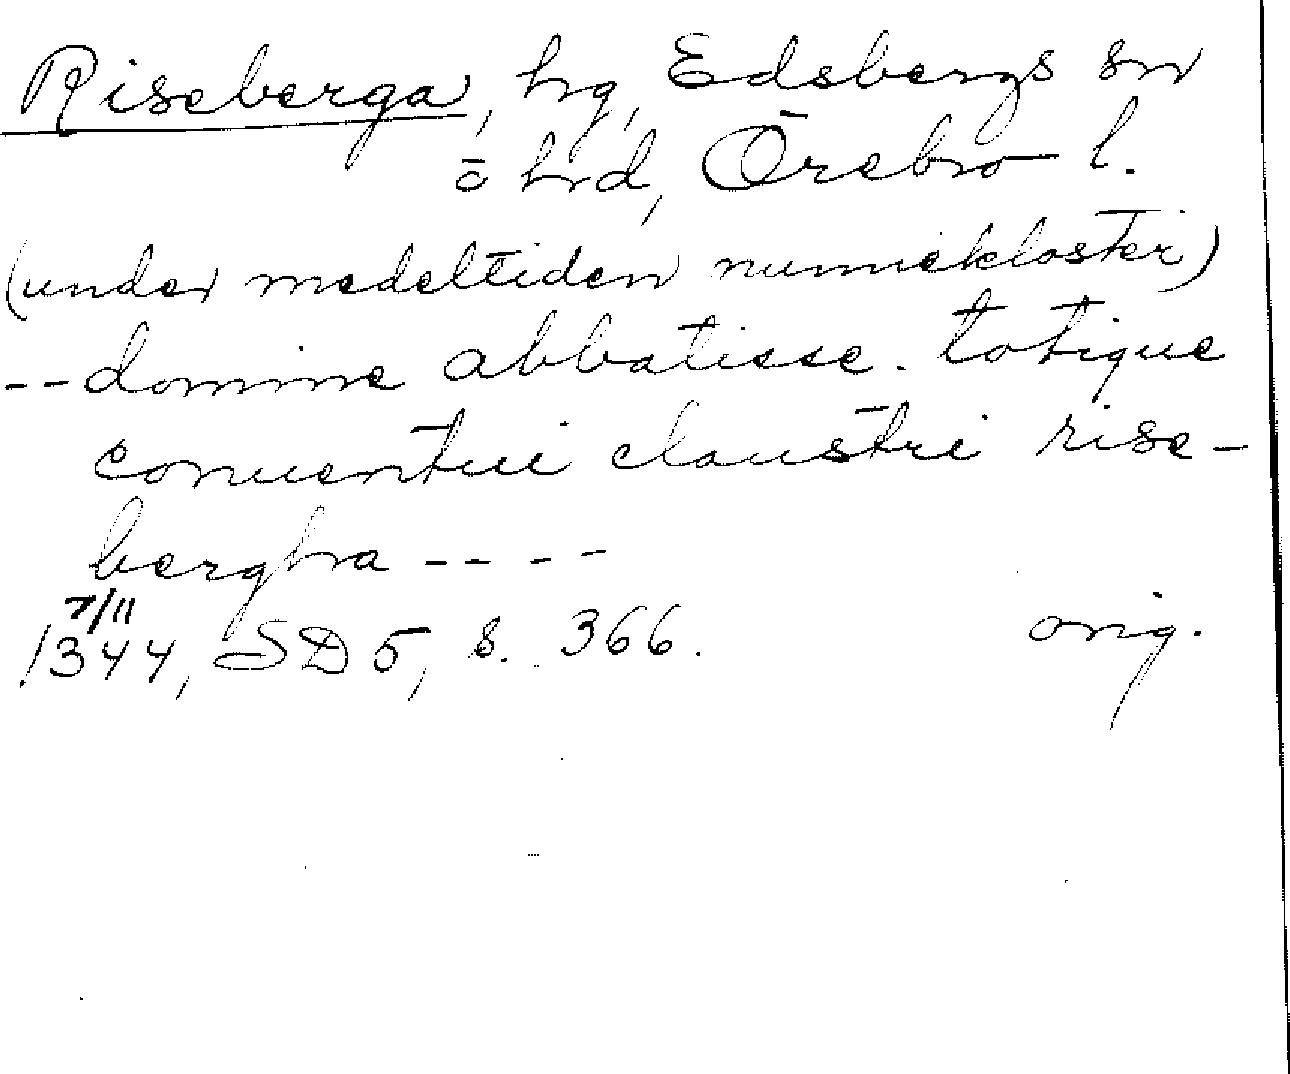 Riseberga, hg, Edsbergs sn
o hrd, Örebro l.
(under medeltiden nunnekloster)
-- domine abbatisse. totique
conuentui claustri rise-
bergha ----
7/11
1344, SD 5, s. 366. orig.